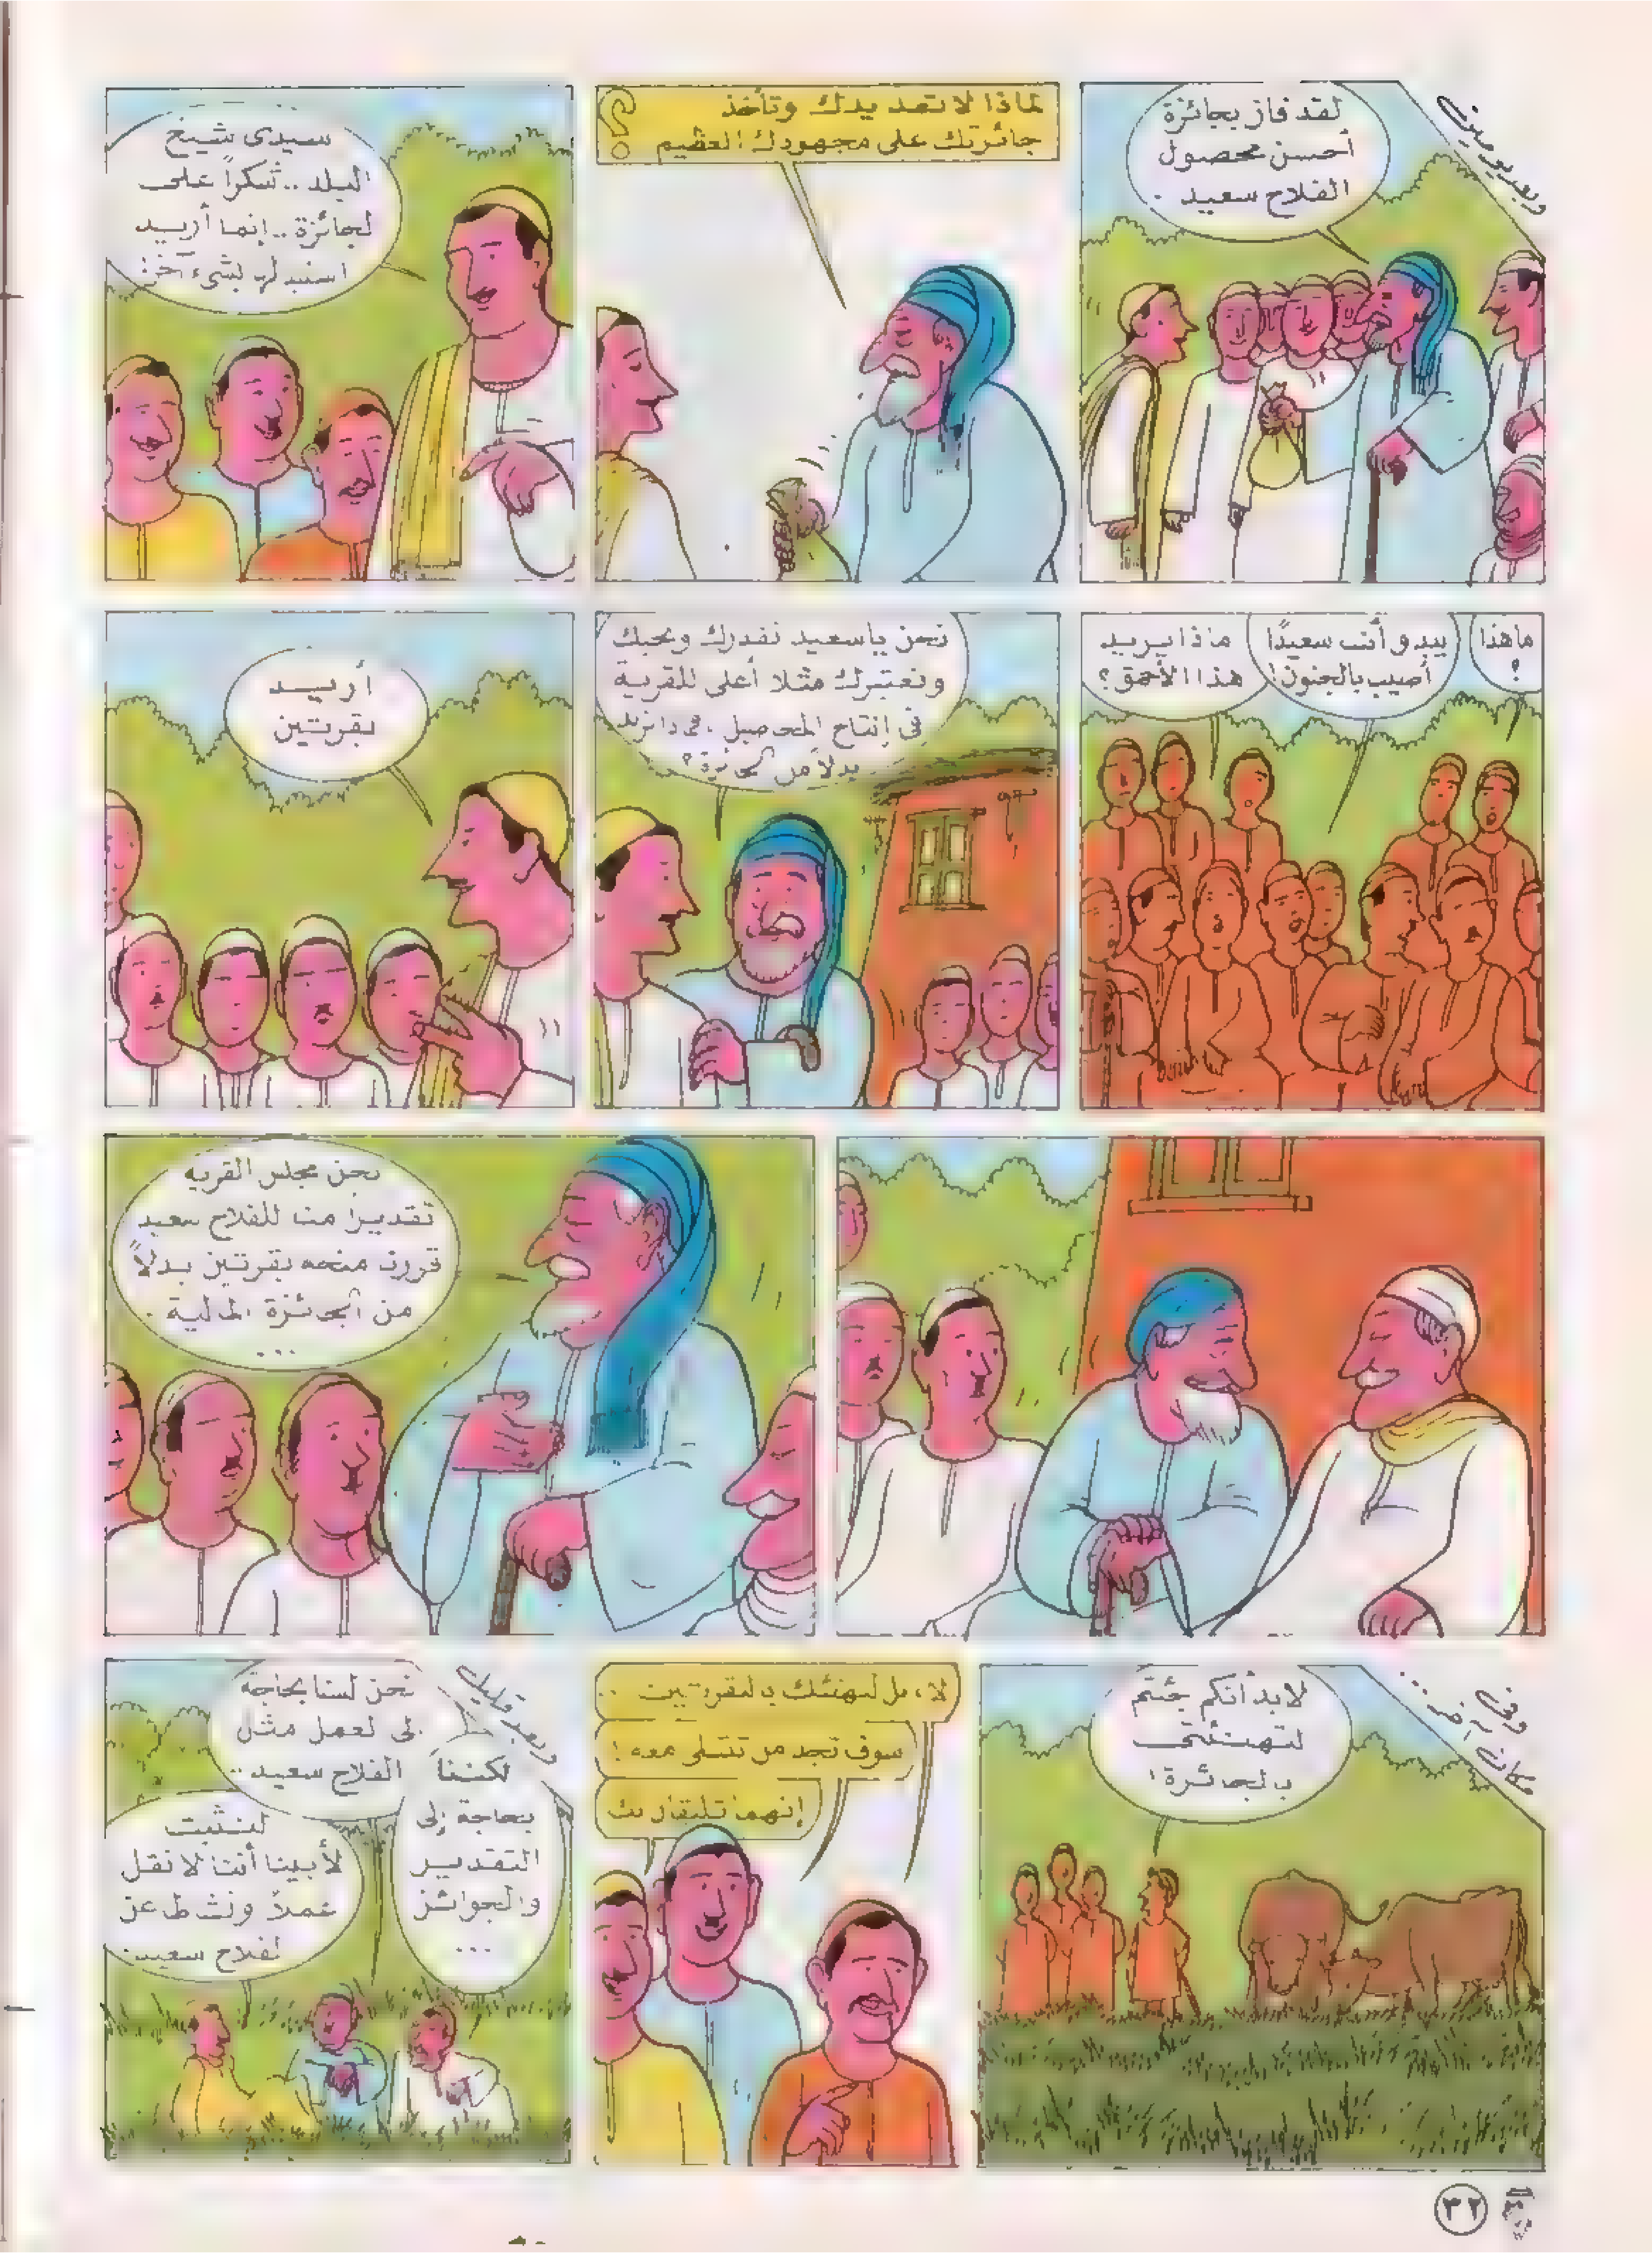 وبعد يومين
لقد فاز بجائزة
أحسن محصول
الفلاح سعيد .
لماذا لا تمد يدك وتأخذ
جائزتك على مجهودك العظيم
؟
سيدى شيخ
البلد .. شكراً على
الجائزة .. إنما أريد
استبدلها بشىء آخر :
ما هذا
؟
يبدو أنت سعيدًا
أصيب بالجنون !
ماذا يريد
هذا الأحمق ؟
نحن ياسعيد نقدرك ونحبك
ونعتبرك مثلا أعلى للقرية
فى إنتاج المحاصيل ،
بدلاً من الجائزة ؟
أريد
بقرتين
نحن مجلس القرية
تقديرا منا للفلاح سعيد
قررنا منحه بقرتين بدلاً
من الجائزة المالية .
...
وفى
مكان آخر ..
لابد أنكم جئتم
لتهنئتى
بالجائزة !
لا ، بل لنهنئك بالبقرتين ..
سوف تجد من تتسلى معه !
إنهما تليقان بك
وبعد قليل
نحن لسنا بحاجة
إلى لعمل مثل
الفلاح سعيد ..
لكننا
بحاجة إلى
التقدير
والجوائز
...
لنثبت
لأبينا أننا لا نقل
عملاً ونشاط عن
لفلاح سعيد .
٣٢